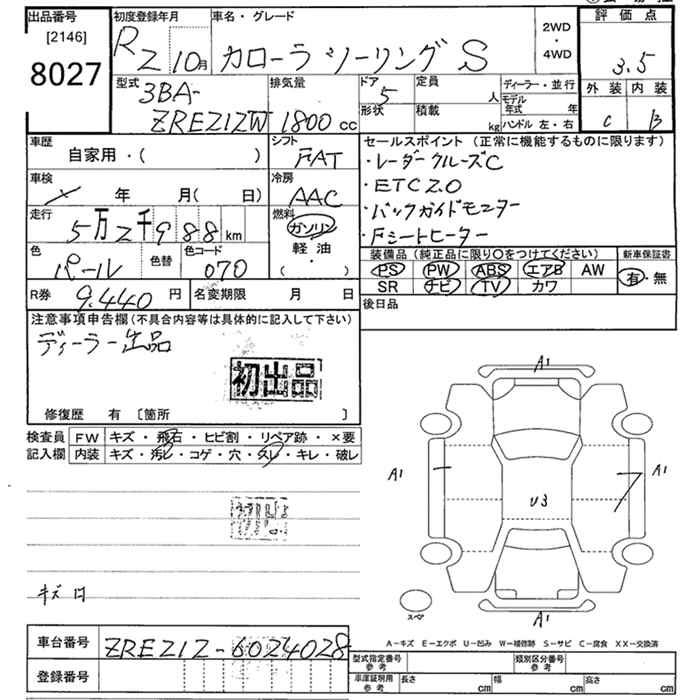 出品番号
[2146]
8027
初度登録年月
R2 10月
車名・グレード
カローラツーリング S
2WD
・
4WD
評価点
3.5
外装 内装
C B
型式
3BA-
ZRE212W
排気量
1800 cc
ドア
5
形状
定員
人
積載
kg
ディーラー・並行
モデル年式 年
ハンドル 左・右
車歴
自家用・( )
シフト
FAT
車検
年 月( 日)
冷房
AAC
走行
5万2千988km
燃料
ガソリン
軽油
・( )
色
パール
色替
色コード
070
R券 9,440円
名変期限 月 日
セールスポイント(正常に機能するものに限ります)
・レーダークルーズC
・ETC2.0
・バックガイドモニター
・Fシートヒーター
装備品(純正品に限り○をつけてください)
PS PW ABS エアB AW
SR ナビ TV カワ
新車保証書
有・無
後日品
注意事項申告欄(不具合内容等は具体的に記入して下さい)
ディーラー出品
初出品
修復歴 有 [箇所 ]
検査員 FW キズ・飛石・ヒビ割・リペア跡・×要
記入欄 内装 キズ・汚レ・コゲ・穴・スレ・キレ・破レ
キズ凹
A1
A1
A1
U3
A1
スペア
A-キズ E-エクボ U-凹み W-補修跡 S-サビ C-腐食 XX-交換済
車台番号 ZRE212-6024028
登録番号
型式指定番号参考
類別区分番号参考
車庫証明用参考 長さ cm 幅 cm 高さ cm